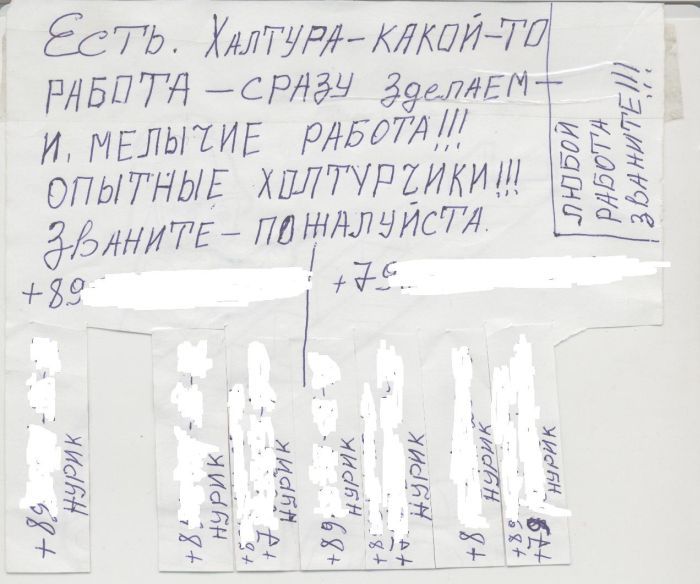 Есть. Халтура-какой-то
работа - сразу зделаем-
и, мелычие работа!!!
опытные холтурчики!!!
Званите - пожалуйста.
любой
работа
званите!!!
+89
+79
+89
Нурик
+8
Нурик
+8
+7
Нурик
+89
Нурик
+8
+7
Нурик
+8
Нурик
+89
+79
Нурик